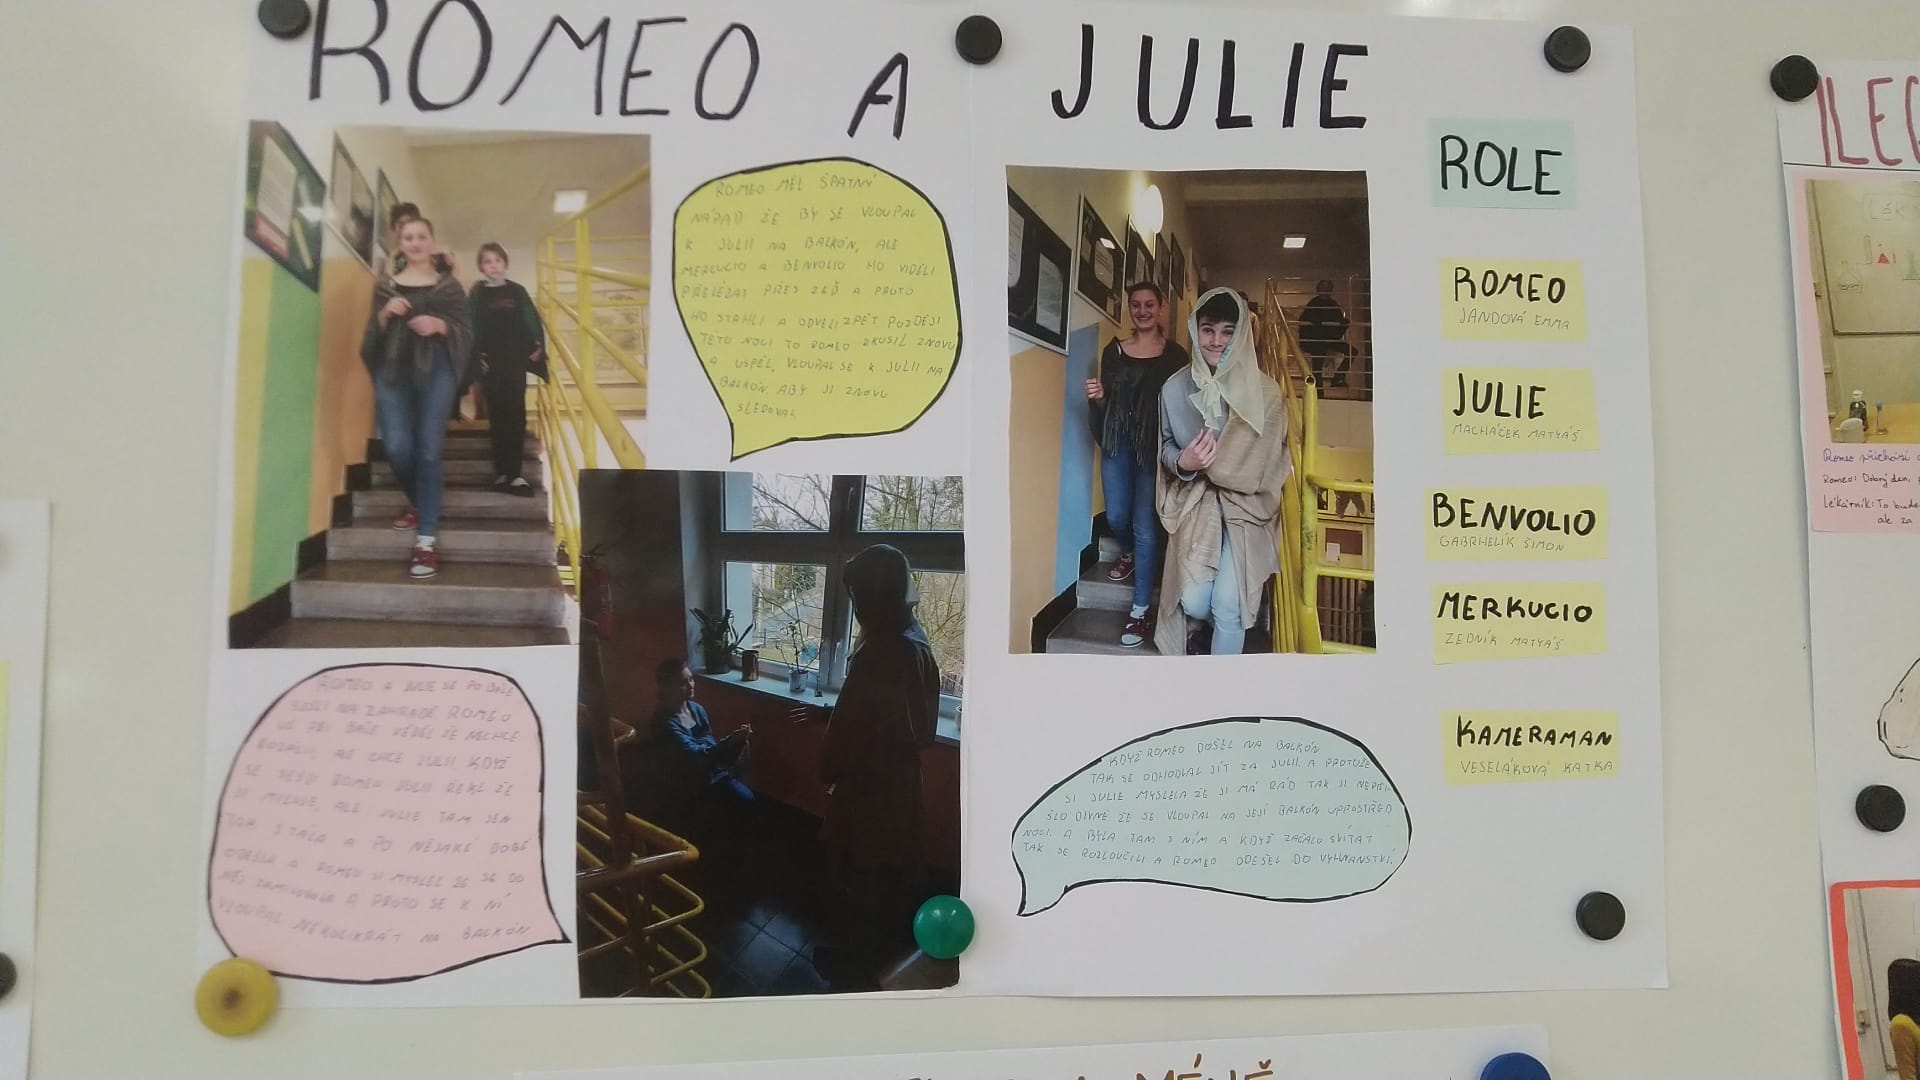 ROMEO A JULIE
ROMEO MĚL ŠPATNÝ
NÁPAD ŽE BY SE VLOUPAL
K JULII NA BALKÓN, ALE
MERKUCIO A BENVOLIO HO VIDĚLI
PŘELÉZAT PŘES ZEĎ A PROTO
HO STÁHLI A ODVELI ZPĚT. POZDĚJI
TÉTO NOCI TO ROMEO ZKUSIL ZNOVU
A USPĚL, VLOUPAL SE K JULII NA
BALKÓN ABY JI ZNOVU
SLEDOVAL
ROMEO A JULIE SE PO BÁLE
SEŠLI NA ZAHRADĚ ROMEO
UŽ PŘI BÁLE VĚDĚL ŽE NECHCE
ROZÁLII, ALE CHCE JULII. KDYŽ
SE SEŠLI ROMEO JULII ŘEKL ŽE
JI MILUJE, ALE JULIE TAM JEN
TAK STÁLA A PO NĚJAKÉ DOBĚ
ODEŠLA A ROMEO SI MYSLEL ŽE SE DO
NĚJ ZAMILOVALA A PROTO SE K NÍ
VLOUPAL NĚKOLIKRÁT NA BALKÓN
KDYŽ ROMEO DOŠEL NA BALKÓN
TAK SE ODHODLAL JÍT ZA JULII. A PROTOŽE
SI JULIE MYSLELA ŽE JI MÁ RÁD TAK JI NEPŘI-
ŠLO DIVNÉ ŽE SE VLOUPAL NA JEJÍ BALKÓN UPPOSTŘED
NOCI. A BYLA TAM S NÍM A KDYŽ ZAČALO SVÍTAT
TAK SE ROZLOUČILI A ROMEO ODEŠEL DO VYHNANSTVÍ.
ROLE
ROMEO
JANDOVÁ EMMA
JULIE
MACHÁČEK MATYÁŠ
BENVOLIO
GABRHELÍK ŠIMON
MERKUCIO
ZEDNÍK MATYÁŠ
KAMERAMAN
VESELÁKOVÁ KATKA
Romeo přichází
Romeo: Dobrý den,
Lékárník: To bude
ale za